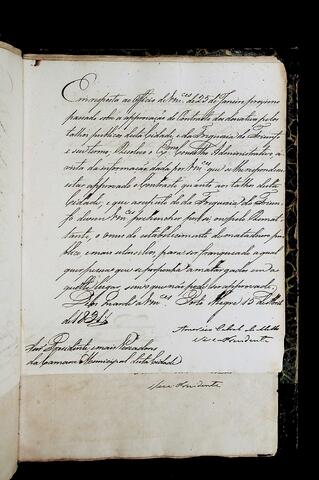 Em resposta ao Officio de Vm.ces de 25 de Janeiro proximo
passado sobre a approvação do Contracto dos donativos pelos
talhos publicos desta Cidade, e da Freguezia do Triunfo
e seu termo, Resolveo o Ex.mo Conselho Administrativo a
vista da informação dada por Vm.ces que se lhe responda em
estar approvado o Contracto quanto aos talhos desta
Cidade, e que a respeito do da Freguezia do Triun-
fo devem Vm.ces por lanços fora o mesmo Rema-
tante, o onus do estabelecimento de matadouro pu-
blico, e mais utensilios, para ser franqueado a qual
quer pessoa que se proponha a matar gados em da
quelle lugar, sem o que não pode ser approvado.
Deos Guarde a Vm.ces Porto Alegre 15 de
de 1831
Americo Cabral de Mello
Vice Presidente
Snr.s Presidente e mais Vereadores
da Camara Municipal desta Cidade
Vice Presidente